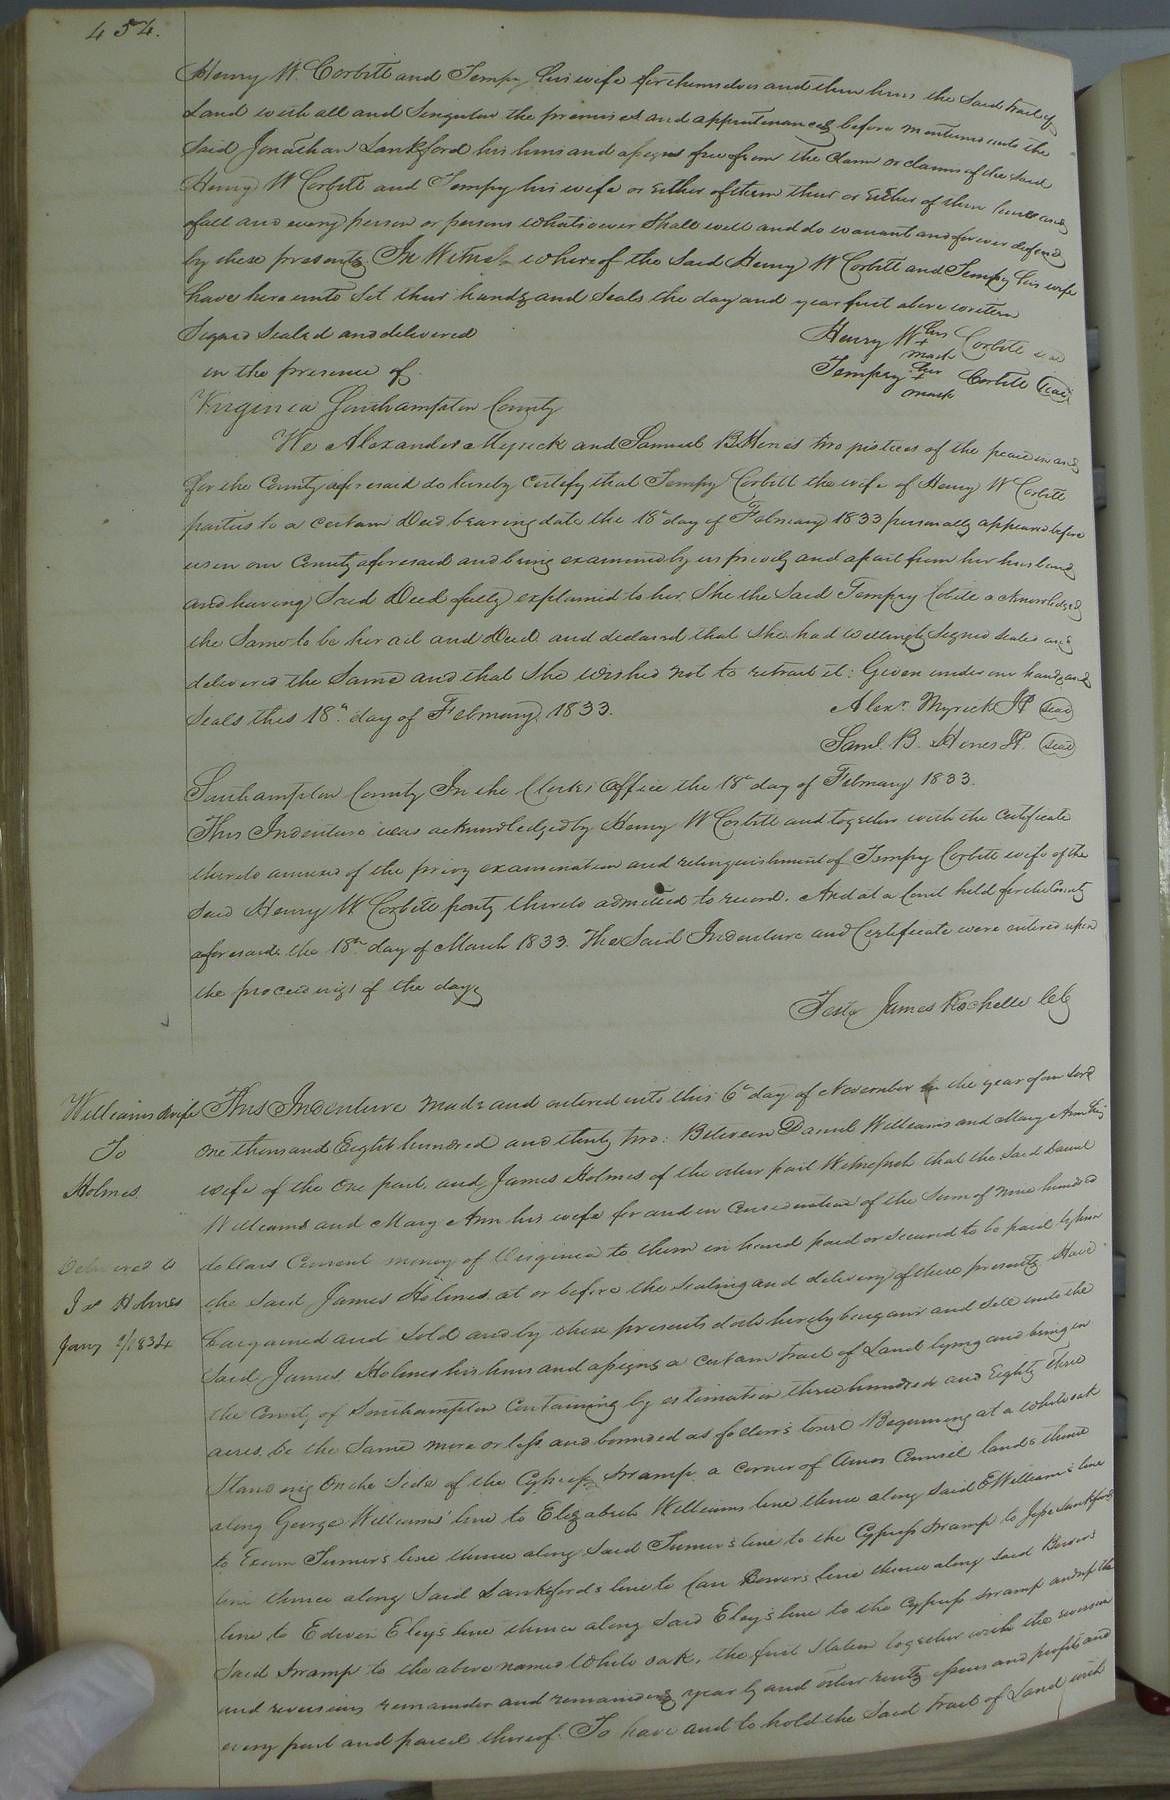 454.
Henry W. Corbitt and Tempy his wife for themselves and their heirs the Said tract of
Land with all and Singular the premises and appurtenances before mentioned unto the
Said Jonathan Lankford his heirs and assigns free from the claim or claims of the Said
Henry W Corbitt and Tempy his wife or Either of them their or Either of their heirs and
of all and every person or persons whatsoever Shall well and do warrant and forever defend
by these presents. In Witness whereof the Said Henry W Corbitt and Tempy his wife
have here unto Set their hands and Seals the day and year first above written
Signed Sealed and delivered
in the presence of
Henry W his + mark Corbitt seal
Tempy her + mark Corbitt seal
Virginia Southampton County
We Alexander Myrick and Samuel B Hines two justices of the peace in and
for the County aforesaid do hereby Certify that Tempy Corbitt the wife of Henry W Corbitt
parties to a Certain Deed bearing date the 18th day of February 1833 personally appeared before
us in our County aforesaid and being examined by us privily and apart from her husband
and having Said Deed fully explained to her She the Said Tempy Cobitt acknowledged
the Same to be her act and Deed and declared that She had willingly Signed Sealed and
delivered the Same and that She wished not to retract it: Given under our hands and
Seals this 18th day of February 1833.
Alexr. Myrick JP seal
Saml. B. Hines JP. seal
Southampton County In the Clerks Office the 18th day of February 1833.
This Indenture was acknowledged by Henry W Corbitt and together with the Certificate
thereto annexed of the privy examination and relinquishment of Tempy Corbitt wife of the
Said Henry W Corbitt party thereto admitted to record. And at a Court held for the County
aforesaid the 18th day of March 1833. The Said Indenture and Certificate were entered upon
the proceedings of the day
Teste James Rochelle CC
Williams & wife
To
Holmes.
Delivered to
Jas Holmes
Jany 1834
This Indenture made and entered into this 6th day of November in the year of our Lord
One thousand Eight hundred and thirty two: Between Daniel Williams and Mary Ann his
wife of the One part. and James Holmes of the other part Witnesseth that the Said Daniel
Williams and Mary Ann his wife for and in Consideration of the Sum of nine hundred
dollars Current money of Virginia to them in hand paid or Secured to be paid by him
the Said James Holmes at or before the Sealing and delivery of these presents Have
bargained and Sold and by these presents doth hereby bargain and Sell unto the
Said James Holmes his heirs and assigns a Certain tract of Land lying and being in
the County of Southampton Containing by estimation three hundred and Eighty three
acres be the Same more or less and bounded as follows towit Beginning at a white oak
Standing On the Side of the Cypress Swamp a corner of Amos Council lands thence
along George Williams' line to Elizabeth Williams line thence along Said E Williams's line
to Exum Turner's line thence along Said Turner's line to the Cypress Swamp to Jesse Lankfords
line thence along Said Lankford's line to Carr Bowers line thence along Said Bowers
line to Edwin Eley's line thence along Said Eley's line to the Cypress Swamp and up the
Said Swamp to the above named White oak, the first Station together with the reversion
and reversions remainder and remainders yearly and other rents issues and profits and
every part and parcel thereof. To have and to hold the Said tract of Land with